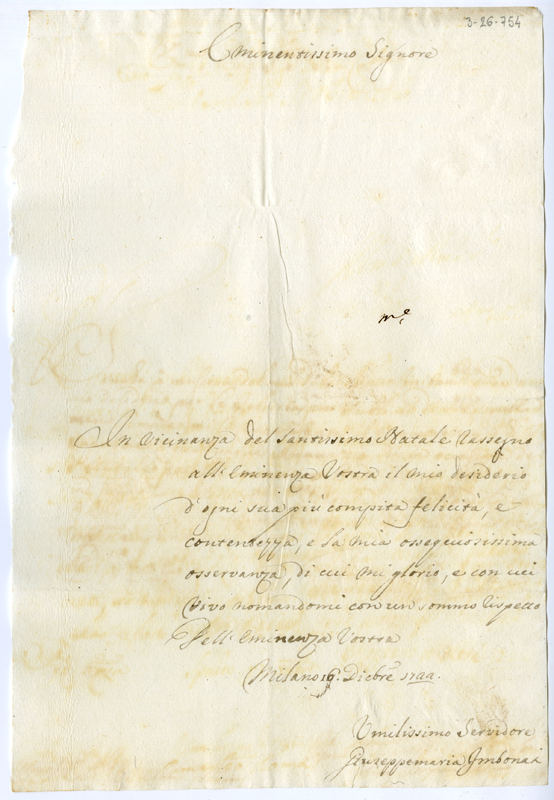 3-26-754
Eminentissimo Signore
In vicinanza del Santissimo Natale rassegno
all'Eminenza Vostra il mio desiderio
d'ogni sua più compita felicità, e
contentezza, e la mia ossequiosissima
osservanza, di cui mi glorio, e con cui
vivo nomandomi con un sommo rispetto
Dell'Eminenza Vostra
Milano 16. Dicbre 1744.
Umilissimo Servidore
Giuseppemaria Imbonati